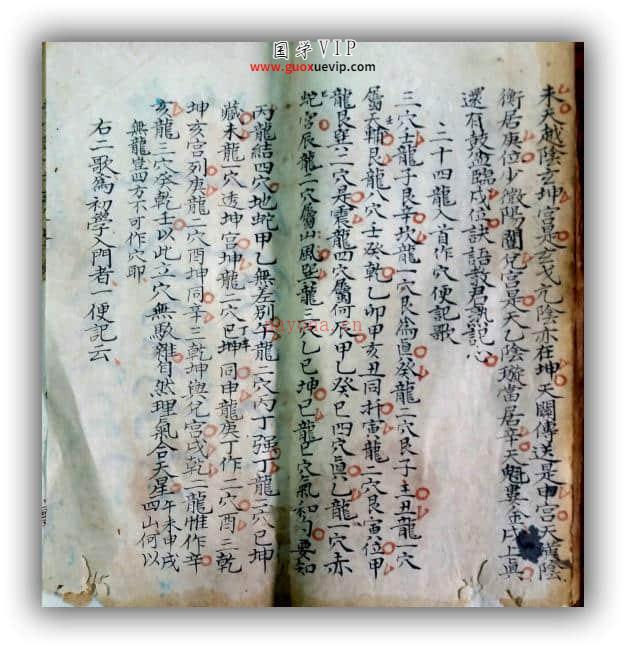 国学VIP
www.guoxuevip.com
未天越陰玄坤宮是玄戈亢陰亦在坤天關傳送是申宮天陰
衡居庚位少微陽闕兌宮是天乙陰璇當居辛天魁婁金戌上真
還有鼓盆臨戌位訣語教君熟記心
二十四龍入首作穴便記歌
三穴壬龍子艮辛坎龍一穴艮為真癸龍二穴艮子主丑龍一穴
屬天輔艮龍八穴壬癸乾乙卯甲亥丑同掛寅龍二穴艮寅位甲
龍艮巽二穴是震龍四穴屬何辰甲乙癸巳四穴真乙龍一穴亦
蛇宮辰龍一穴屬山風巽龍三穴乙巳坤巳龍巳穴氣和要知
丙龍結四穴地蛇甲乙無差別午龍二穴丙丁強丁龍二穴巳坤
藏未龍一穴透坤宮坤龍二穴巳坤同申龍庚丁作二穴酉三乾
丁庚
坤亥宮列庚龍一穴酉坤同辛二乾坤與兌宮戌乾二龍惟作辛
亥龍三穴癸乾壬以此立穴無駁雜自然理氣合天星午未申戌
四山何以
無龍豈四方不可作穴耶
右二歌為初學入門者一便記云